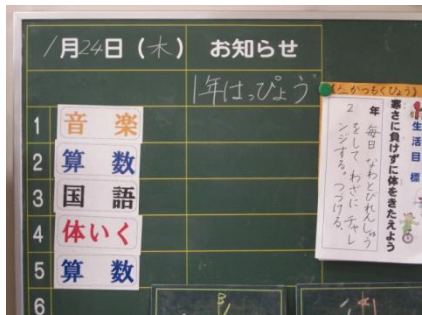 1月24日（木）　お知らせ
1年はっぴょう
1 音楽
2 算数
3 国語
4 体いく
5 算数
6
生活目標
寒さに負けずに体をきたえよう
2年 毎日 なわとびれんしゅう
をして わざに チャレ
ンジする。つづける。